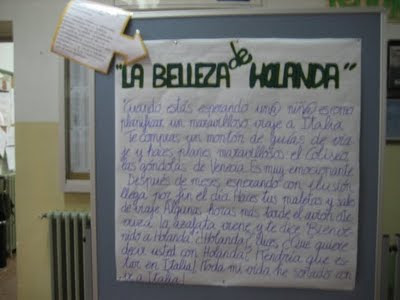 "LA BELLEZA de HOLANDA"
Cuando estás esperando un@ niñ@ es como
planificar un maravilloso viaje a Italia.
Te compras un montón de guías de via
je y haces planes maravillosos: el Coliseo,
las góndolas de Venecia. Es muy emocionante
Después de meses esperando con ilusión
llega por fin el día. Haces tus maletas y sales
de viaje. Algunas horas más tarde el avión ate
rriza la azafata viene y te dice "Bienve
nido a Holanda" ¿Holanda? dices ¿Qué quiere
decir usted con Holanda? ¡Tendría que es
tar en Italia! Toda mi vida he soñado con
ir a Italia!